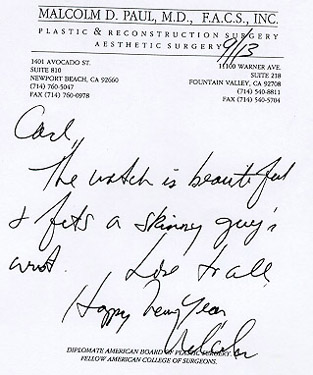 MALCOLM D. PAUL, M.D., F.A.C.S., INC.
PLASTIC & RECONSTRUCTION SURGERY
AESTHETIC SURGERY
9/13
1401 AVOCADO ST.
SUITE 810
NEWPORT BEACH, CA 92660
(714) 760-5047
FAX (714) 760-0978
11100 WARNER AVE.
SUITE 218
FOUNTAIN VALLEY, CA 92708
(714) 540-8811
FAX (714) 540-5704
Carl,
The watch is beautiful
& fits a skinny guy's
wrist. Love to all,
Happy New Year
Malcolm
DIPLOMATE AMERICAN BOARD OF PLASTIC SURGERY
FELLOW AMERICAN COLLEGE OF SURGEONS.